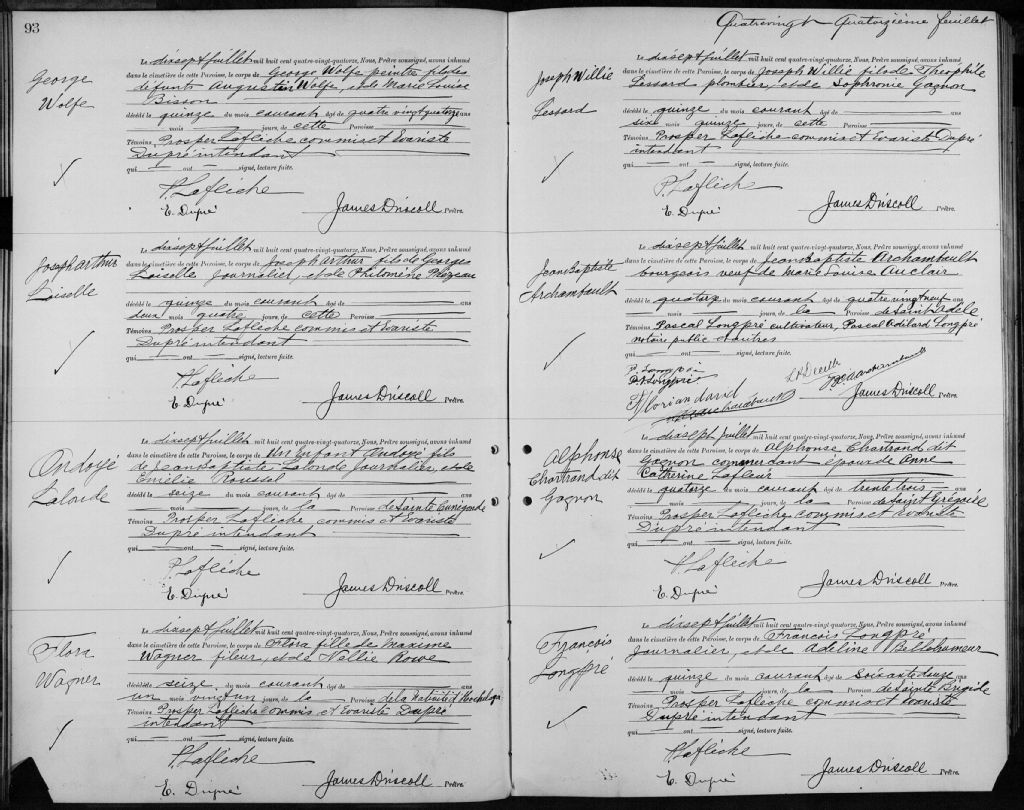 93
George
Wolfe
Le dixsept juillet mil huit cent quatre-vingt-quatorze, Nous, Prêtre soussigné, avons inhumé
dans le cimetière de cette Paroisse, le corps de George Wolfe peintre fils des
défunts Augustin Wolfe, et de Marie Louise
Bisson
décédé le quinze du mois courant âgé de quatre vingt quatorze ans
mois jours, de cette Paroisse
Témoins Prosper Laflèche commis et Evariste
Dupré intendant
qui ont signé, lecture faite.
P. Laflèche
E. Dupré James Driscoll Prêtre.
Joseph Arthur
Loiselle
Le dixsept juillet mil huit cent quatre-vingt-quatorze, Nous, Prêtre soussigné, avons inhumé
dans le cimetière de cette Paroisse, le corps de Joseph Arthur fils de Georges
Loiselle journalier, et de Philomène
décédé le quinze du mois courant âgé de ans
deux mois quatre jours, de cette Paroisse
Témoins Prosper Laflèche commis et Evariste
Dupré intendant
qui ont signé, lecture faite.
P. Laflèche
E. Dupré James Driscoll Prêtre.
Ondoyé
Lalonde
Le dixsept juillet mil huit cent quatre-vingt-quatorze, Nous, Prêtre soussigné, avons inhumé
dans le cimetière de cette Paroisse, le corps de Un Enfant Ondoyé fils
de Jean Baptiste Lalonde Journalier, et de
Emélie Roussel
décédé le seize du mois courant âgé de ans
mois jours, de la Paroisse de Sainte Cunégonde
Témoins Prosper Laflèche commis et Evariste
Dupré intendant
qui ont signé, lecture faite.
P. Laflèche
E. Dupré James Driscoll Prêtre.
Flora
Wagner
Le dixsept juillet mil huit cent quatre-vingt-quatorze, Nous, Prêtre soussigné, avons inhumé
dans le cimetière de cette Paroisse, le corps de Flora fille de Maxime
Wagner fileur, et de Nellie Rowe
décédé le seize du mois courant âgé de ans
un mois vingt un jours, de la Paroisse de la Nativité d'Hochelaga
Témoins Prosper Laflèche commis et Evariste Dupré
intendant
qui ont signé, lecture faite.
P. Laflèche
E. Dupré James Driscoll Prêtre.
Quatrevingt Quatorzième feuillet
Joseph Willie
Lessard
Le dixsept juillet mil huit cent quatre-vingt-quatorze, Nous, Prêtre soussigné, avons inhumé
dans le cimetière de cette Paroisse, le corps de Joseph Willie fils de Théophile
Lessard plombier, et de Sophronie Gagnon
décédé le quinze du mois courant âgé de ans
six mois quinze jours, de cette Paroisse
Témoins Prosper Laflèche commis et Evariste Dupré
intendant
qui ont signé, lecture faite.
P. Laflèche
E. Dupré James Driscoll Prêtre.
Jean Baptiste
Archambault
Le dixsept juillet mil huit cent quatre-vingt-quatorze, Nous, Prêtre soussigné, avons inhumé
dans le cimetière de cette Paroisse, le corps de Jean Baptiste Archambault
bourgeois veuf de Marie Louise Auclair
décédé le quatorze du mois courant âgé de quatre vingt neuf ans
mois jours, de la Paroisse de Saint Adèle
Témoins Pascal Longpré cultivateur, Pascal Adélard Longpré
notaire public et autres
qui ont signé, lecture faite.
P. Longpré
Florian david
James Driscoll Prêtre.
Alphonse
Chartrand dit
Gagnon
Le dixsept juillet mil huit cent quatre-vingt-quatorze, Nous, Prêtre soussigné, avons inhumé
dans le cimetière de cette Paroisse, le corps de Alphonse Chartrand dit
Gagnon commerçant époux de Anne
Catherine Lafleur
décédé le quatorze du mois courant âgé de trente trois ans
mois jours, de la Paroisse de Saint Grégoire
Témoins Prosper Laflèche commis et Evariste
Dupré intendant
qui ont signé, lecture faite.
P. Laflèche
E. Dupré James Driscoll Prêtre.
François
Longpré
Le dixsept juillet mil huit cent quatre-vingt-quatorze, Nous, Prêtre soussigné, avons inhumé
dans le cimetière de cette Paroisse, le corps de François Longpré
Journalier, et de Adeline Bellehumeur
décédé le quinze du mois courant âgé de Soixante douze ans
mois jours, de la Paroisse de Sainte Brigide
Témoins Prosper Laflèche commis et Evariste
Dupré intendant
qui ont signé, lecture faite.
P. Laflèche
E. Dupré James Driscoll Prêtre.